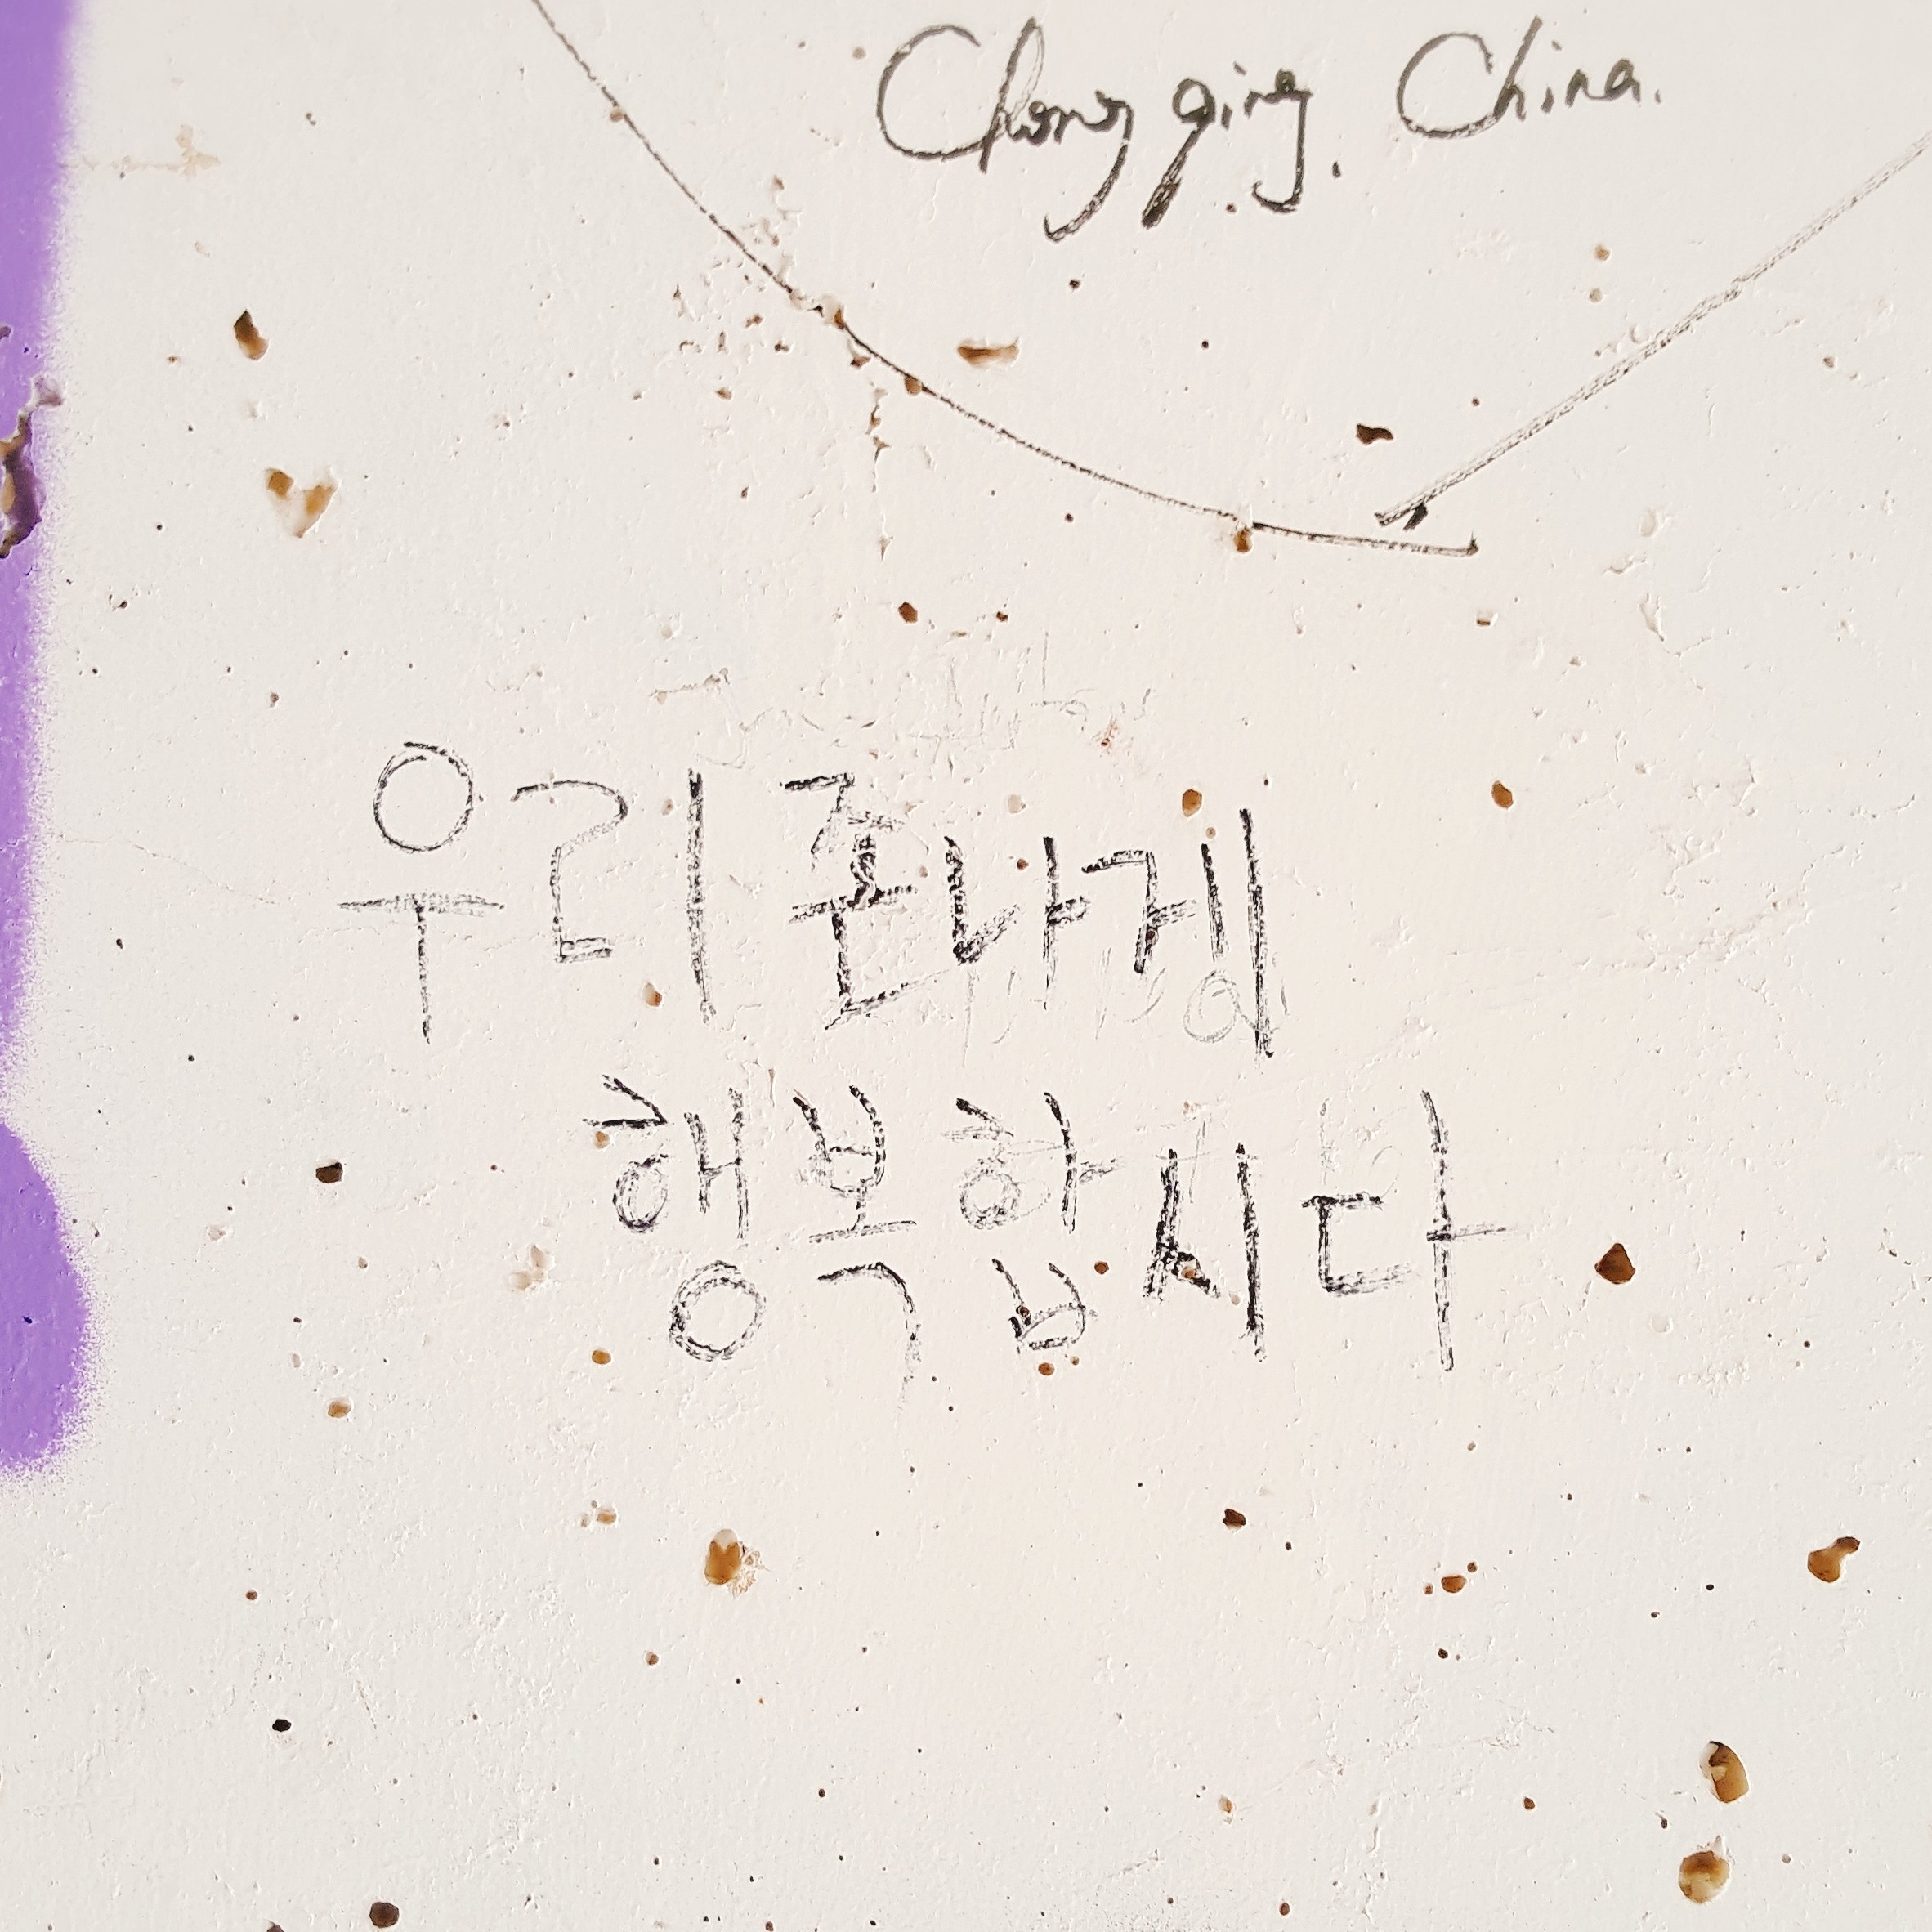 Chong qing. China.
우리 존나게
행복합시다